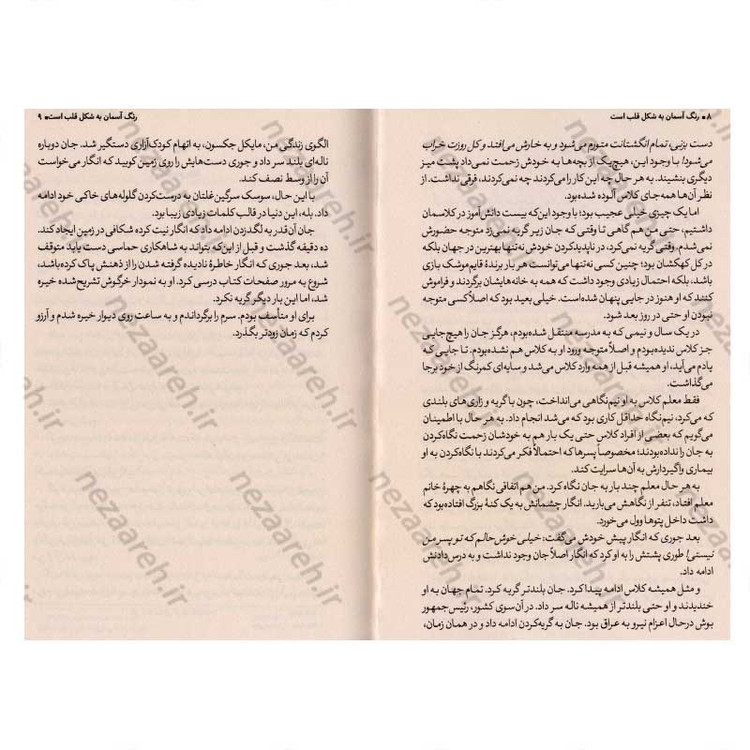 ۸ • رنگ آسمان به شکل قلب است
دست بزنی، تمام انگشتانت متورم می‌شود و به خارش می‌افتد و کل روزت خراب
می‌شود! با وجود این، هیچ‌یک از بچه‌ها به خودش زحمت نمی‌داد پشت میز
دیگری بنشیند. به هر حال چه این کار را می‌کردند چه نمی‌کردند، فرقی نداشت. از
نظر آن‌ها همه‌جای کلاس آلوده شده بود.
اما یک چیزی خیلی عجیب بود؛ با وجود این‌که بیست دانش‌آموز در کلاسمان
داشتیم، حتی من هم گاهی تا وقتی که جان زیر گریه نمی‌زد متوجه حضورش
نمی‌شدم. وقتی گریه نمی‌کرد، در ناپدیدکردن خودش نه‌تنها بهترین در جهان بلکه
در کل کهکشان بود؛ چنین کسی نه‌تنها می‌توانست هر بار برندهٔ قایم‌موشک بازی
باشد، بلکه احتمال زیادی وجود داشت که همه به خانه‌هایشان برگردند و فراموش
کنند که او هنوز در جایی پنهان شده‌است. خیلی بعید بود که اصلاً کسی متوجه
نبودن او حتی در روز بعد شود.
در یک سال و نیمی که به مدرسه منتقل شده‌بودم، هرگز جان را هیچ‌جایی
جز کلاس ندیده‌بودم و اصلاً متوجه ورود او به کلاس هم نشده‌بودم. تا جایی که
یادم می‌آید، او همیشه قبل از همه وارد کلاس می‌شد و سایه‌ای کمرنگ از خود برجا
می‌گذاشت.
فقط معلم کلاس به او نیم‌نگاهی می‌انداخت، چون با گریه و زاری‌های بلندی
که می‌کرد، نیم‌نگاه حداقل کاری بود که می‌شد انجام داد. به هر حال با اطمینان
می‌گویم که بعضی از افراد کلاس حتی یک بار هم به خودشان زحمت نگاه‌کردن
به جان را نداده‌بودند؛ مخصوصاً پسرها که احتمالاً فکر می‌کردند با نگاه‌کردن به او
بیماری واگیردارش به آن‌ها سرایت کند.
به هر حال معلم چند بار به جان نگاه کرد. من هم اتفاقی نگاهم به چهرهٔ خانم
معلم افتاد، تنفر از نگاهش می‌بارید. انگار چشمانش به یک کنهٔ بزرگ افتاده‌بود که
داشت داخل پتوها وول می‌خورد.
بعد جوری که انگار پیش خودش می‌گفت: خیلی خوش‌حالم که تو پسر من
نیستی! طوری پشتش را به او کرد که انگار اصلاً جان وجود نداشت و به درس‌دادنش
ادامه داد.
و مثل همیشه کلاس ادامه پیدا کرد. جان بلندتر گریه کرد. تمام جهان به او
خندیدند و او حتی بلندتر از همیشه ناله سر داد. در آن‌سوی کشور، رئیس‌جمهور
بوش درحال اعزام نیرو به عراق بود. جان به گریه‌کردن ادامه داد و در همان زمان،
رنگ آسمان به شکل قلب است • ۹
الگوی زندگی من، مایکل جکسون، به اتهام کودک‌آزاری دستگیر شد. جان دوباره
ناله‌ای بلند سر داد و جوری دست‌هایش را روی زمین کوبید که انگار می‌خواست
آن را از وسط نصف کند.
با این حال، سوسک سرگین‌غلتان به درست‌کردن گلوله‌های خاکی خود ادامه
داد. بله، این دنیا در قالب کلمات زیادی زیبا بود.
جان آن‌قدر به لگدزدن ادامه داد که انگار نیت کرده شکافی در زمین ایجاد کند.
ده دقیقه گذشت و قبل از این‌که بتواند به شاهکاری حماسی دست یابد متوقف
شد، بعد جوری که انگار خاطرهٔ نادیده گرفته شدن را از ذهنش پاک کرده‌باشد،
شروع به مرور صفحات کتاب درسی کرد. او به نمودار خرگوش تشریح‌شده خیره
شد، اما این بار دیگر گریه نکرد.
برای او متأسف بودم. سرم را برگرداندم و به ساعت روی دیوار خیره شدم و آرزو
کردم که زمان زودتر بگذرد.
nezaareh.ir